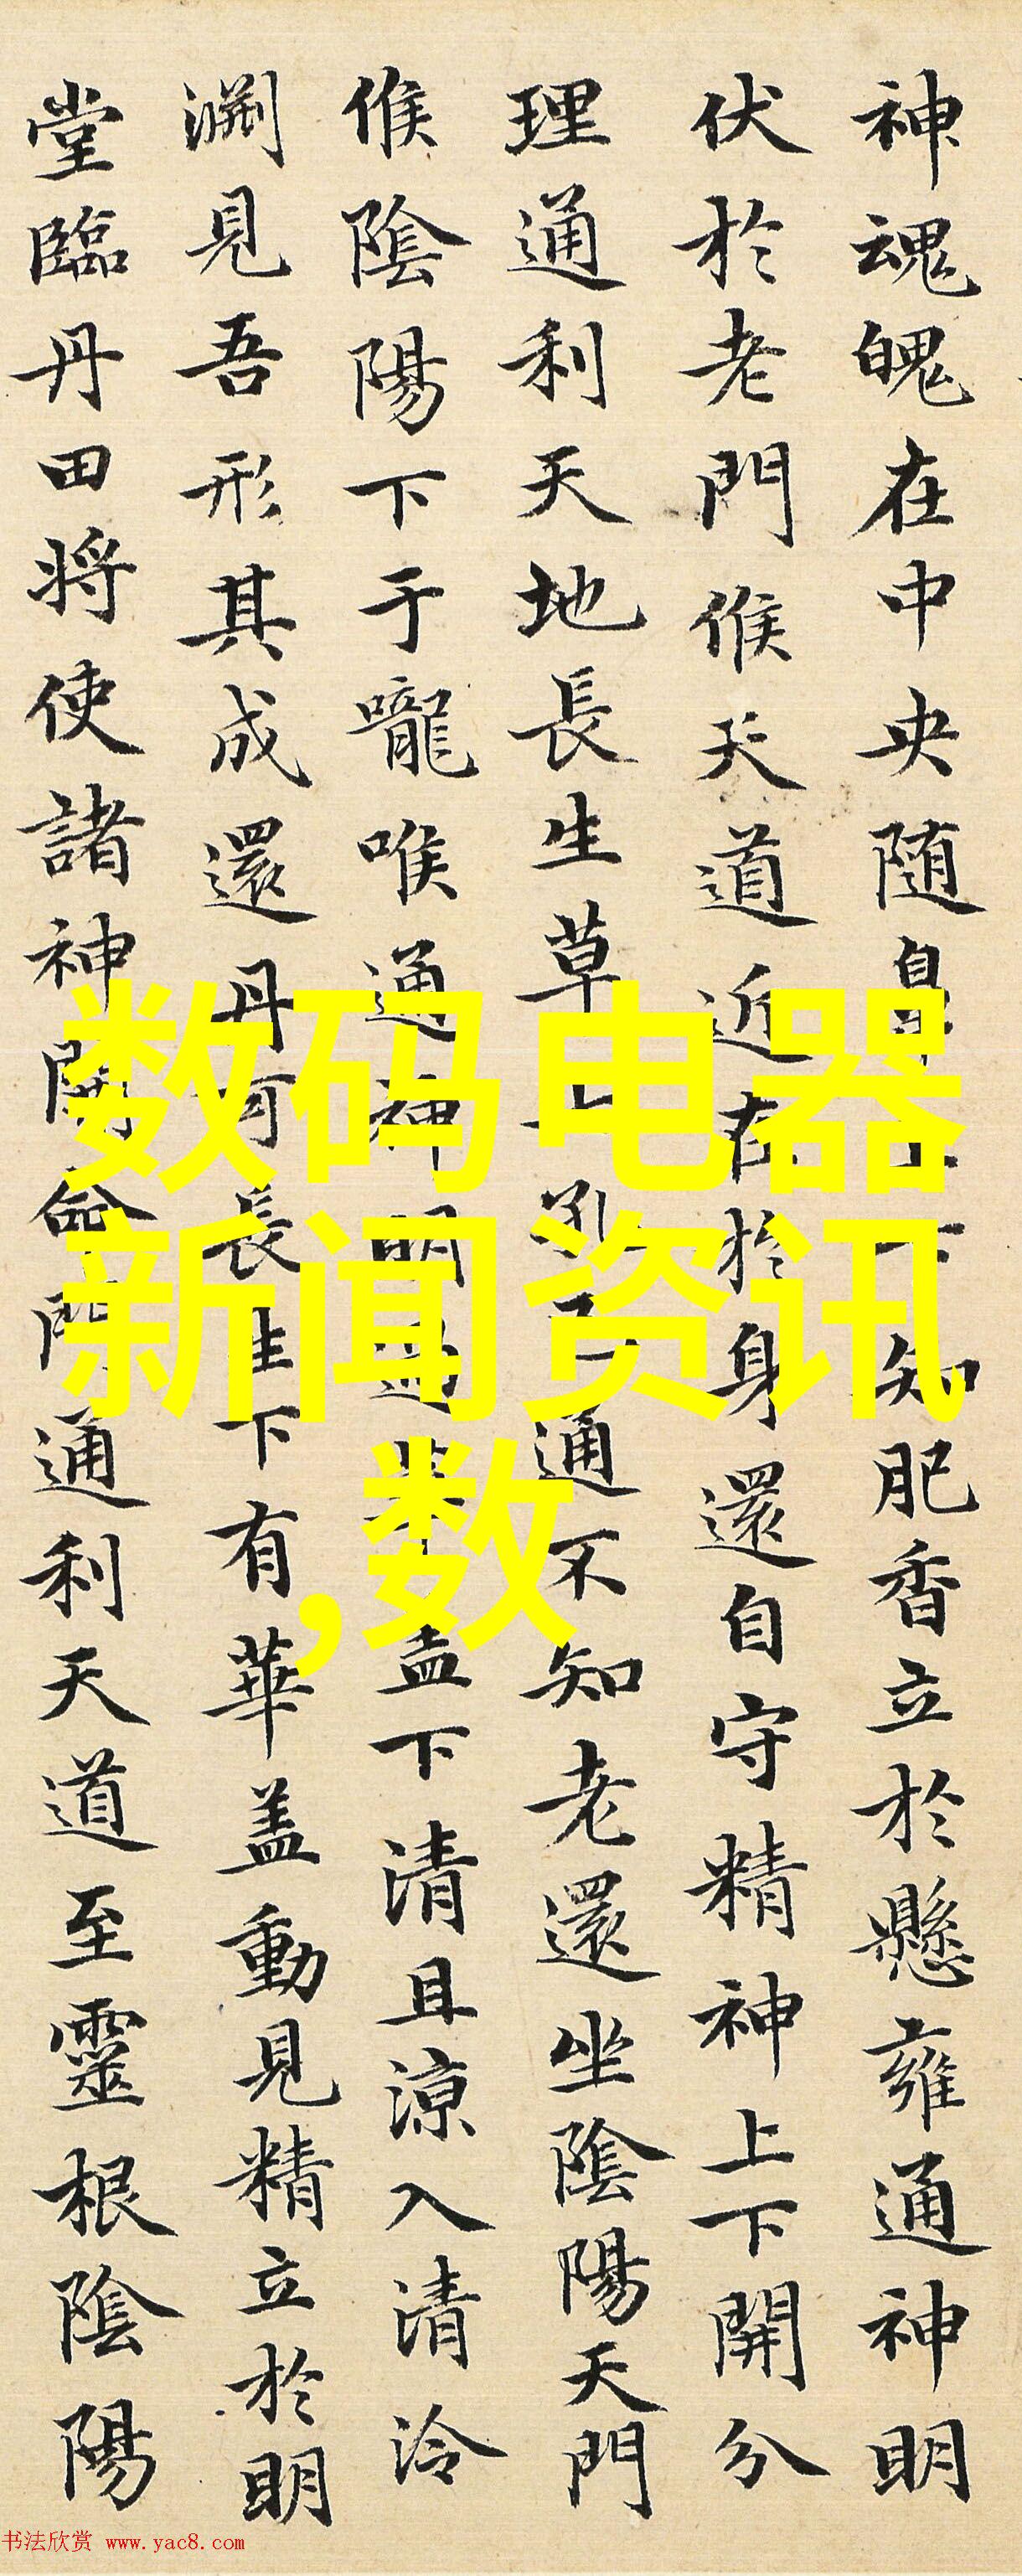 神魂魄在中央随鼻上下知肥香立於懸雍通神明
伏於老門候天道近在於身還自守精神上下開分
理通利天地長生草七孔已通不知老還坐陰陽天門
候陰陽下于嚨喉通神明過華盖下清且涼入清泠
渊見吾形其成還丹可長生下有華盖動見精立於明
堂臨丹田将使諸神開命門通利天道至靈根陰陽
数码电器
新闻资讯
,数
书法欣赏 www.yac8.com